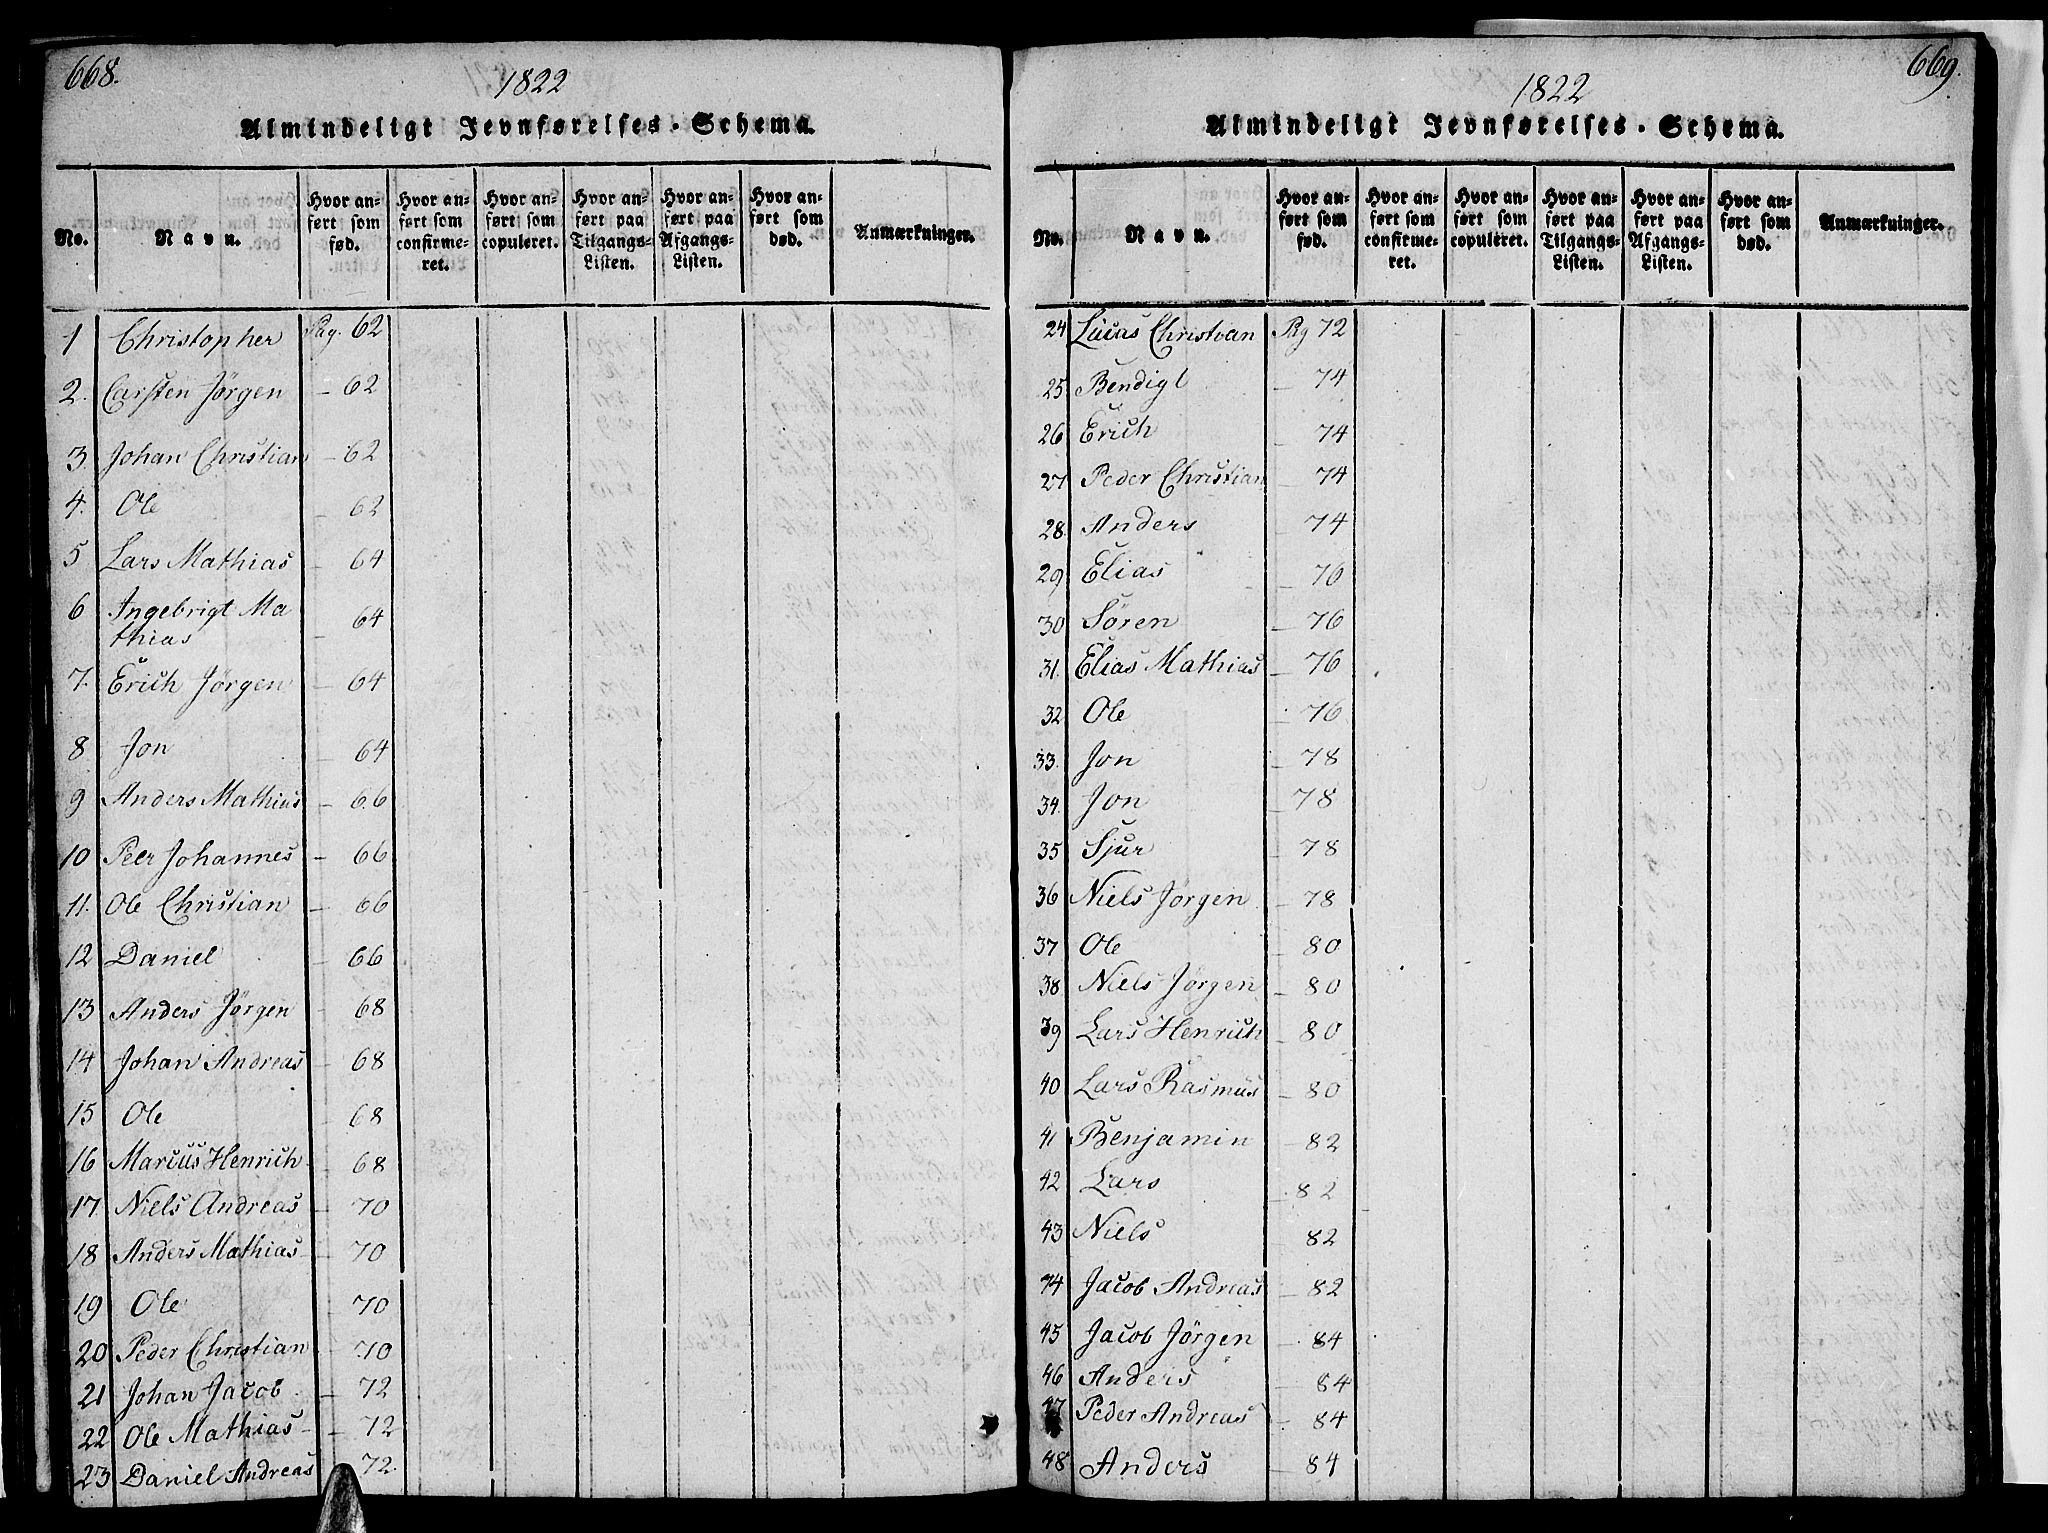 668.
1822
Almindeligt Jevnførelses-Schema.
No.
Navn.
Hvor an-
ført som
fød.
Hvor an-
ført som
confirme-
ret.
Hvor an-
ført som
copuleret.
Hvor an-
ført paa
Tilgangs-
Listen.
Hvor an-
ført paa
Afgangs-
Listen.
Hvor an-
ført som
død.
Anmærkninger.
1 Christopher Pag. 62
2. Carsten Jörgen – 62
3 Johan Christian – 62
4. Ole – 62
5 Lars Mathias – 64
6 Ingebrigt Ma
thias – 64
7. Erich Jörgen – 64
8 Jon – 64
9 Anders Mathias – 66
10 Peer Johannes – 66
11. Ole Christian – 66
12 Daniel – 66
13 Anders Jörgen – 68
14 Johan Andreas – 68
15 Ole – 68
16 Marcus Henrich – 68
17 Niels Andreas – 70
18 Anders Mathias – 70
19 Ole – 70
20 Peder Christian – 70
21 Johan Jacob – 72
22 Ole Mathias – 72
23 Daniel Andreas – 72
669.
1822
Almindeligt Jevnførelses-Schema.
No.
Navn.
Hvor an-
ført som
fød.
Hvor an-
ført som
confirme-
ret.
Hvor an-
ført som
copuleret.
Hvor an-
ført paa
Tilgangs-
Listen.
Hvor an-
ført paa
Afgangs-
Listen.
Hvor an-
ført som
død.
Anmærkninger.
24 Lucas Christian Pag 72
25 Bendigt – 74
26 Erich – 74
27 Peder Christian – 74
28. Anders – 74
29 Elias – 76
30 Sören – 76
31. Elias Mathias – 76
32. Ole – 76
33. Jon – 78
34. Jon – 78
35 Sjur – 78
36 Niels Jörgen – 78
37 Ole – 80
38 Niels Jörgen – 80
39 Lars Henrich – 80
40 Lars Rasmus – 80
41 Benjamin – 82
42 Lars – 82
43 Niels – 82
44 Jacob Andreas – 82
45 Jacob Jörgen – 84
46 Anders – 84
47 Peder Andreas – 84
48 Anders – 84